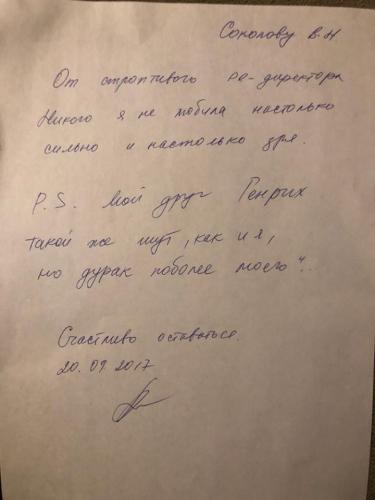 Соколову В.Н
От строптивого ре-директора
Никого я не любила настолько
сильно и настолько зря.
P.S. Мой друг Генрих
такой же шут, как и я,
но дурак поболее моего"..
Счастливо оставаться.
20.09.2017